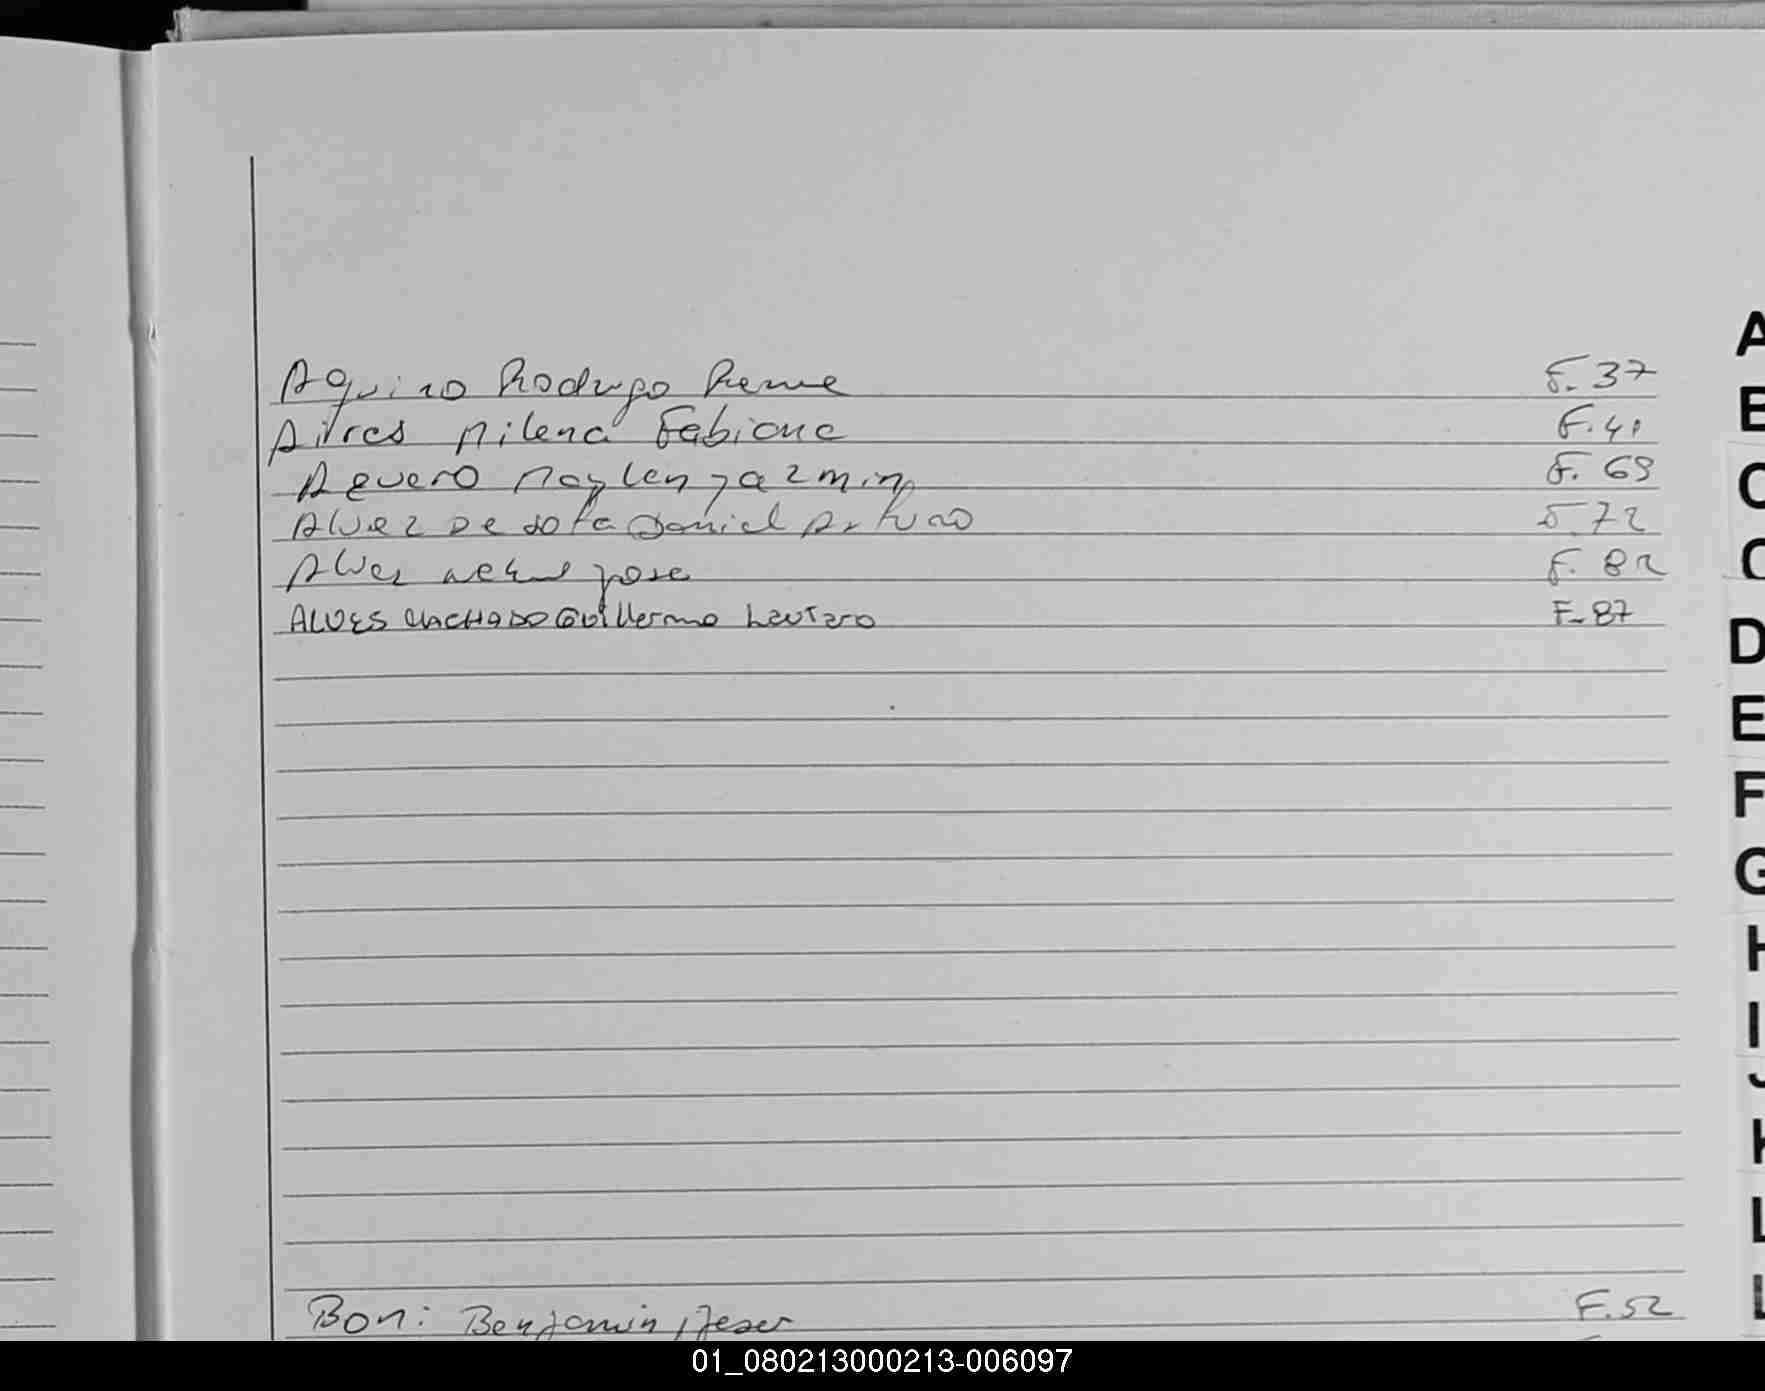 Aquino Rodrigo Rene F. 37
Aires Milena Fabiana F. 41
Aguero Maylen Yazmin F. 69
Alvez De Sota Daniel Arturo F. 72
Alvez Jose F. 82
ALVES MACHADO Guillermo Lautaro F-87
Boni Benjamin F.52
A
B
C
C
D
E
F
G
H
I
J
K
L
L
01_080213000213-006097